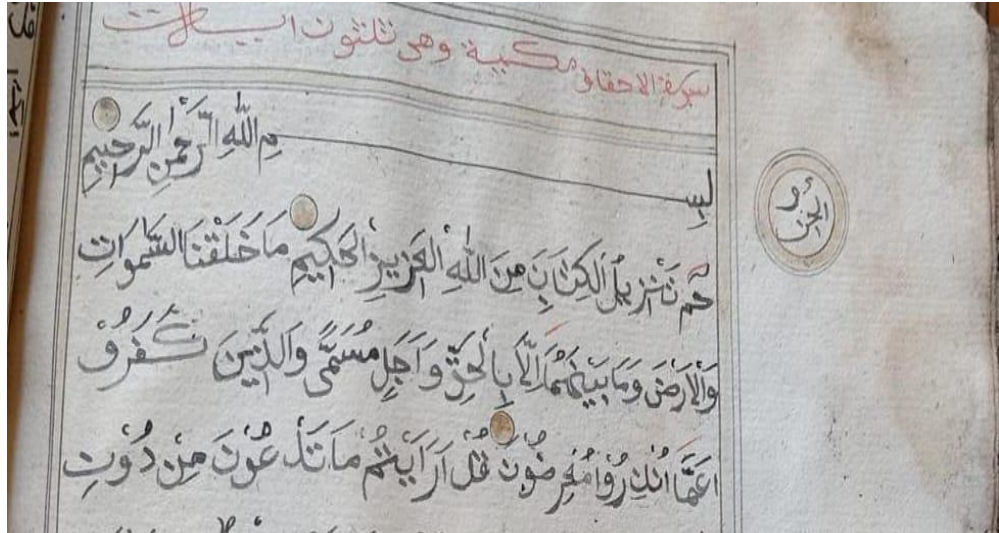 سورة الاحقاف مكية وهى ثلثون ايات
بِسْمِ اللّٰهِ الرَّحْمٰنِ الرَّحِيمِ
حٰم تَنْزِيلُ الْكِتَابِ مِنَ اللّٰهِ الْعَزِيزِ الْحَكِيمِ مَا خَلَقْنَا السَّمٰوَاتِ
وَالْاَرْضَ وَمَا بَيْنَهُمَا اِلَّا بِالْحَقِّ وَاَجَلٍ مُسَمًّى وَالَّذِينَ كَفَرُوا
عَمَّا اُنْذِرُوا مُعْرِضُونَ قُلْ اَرَاَيْتُمْ مَا تَدْعُونَ مِنْ دُونِ
الجزؤ